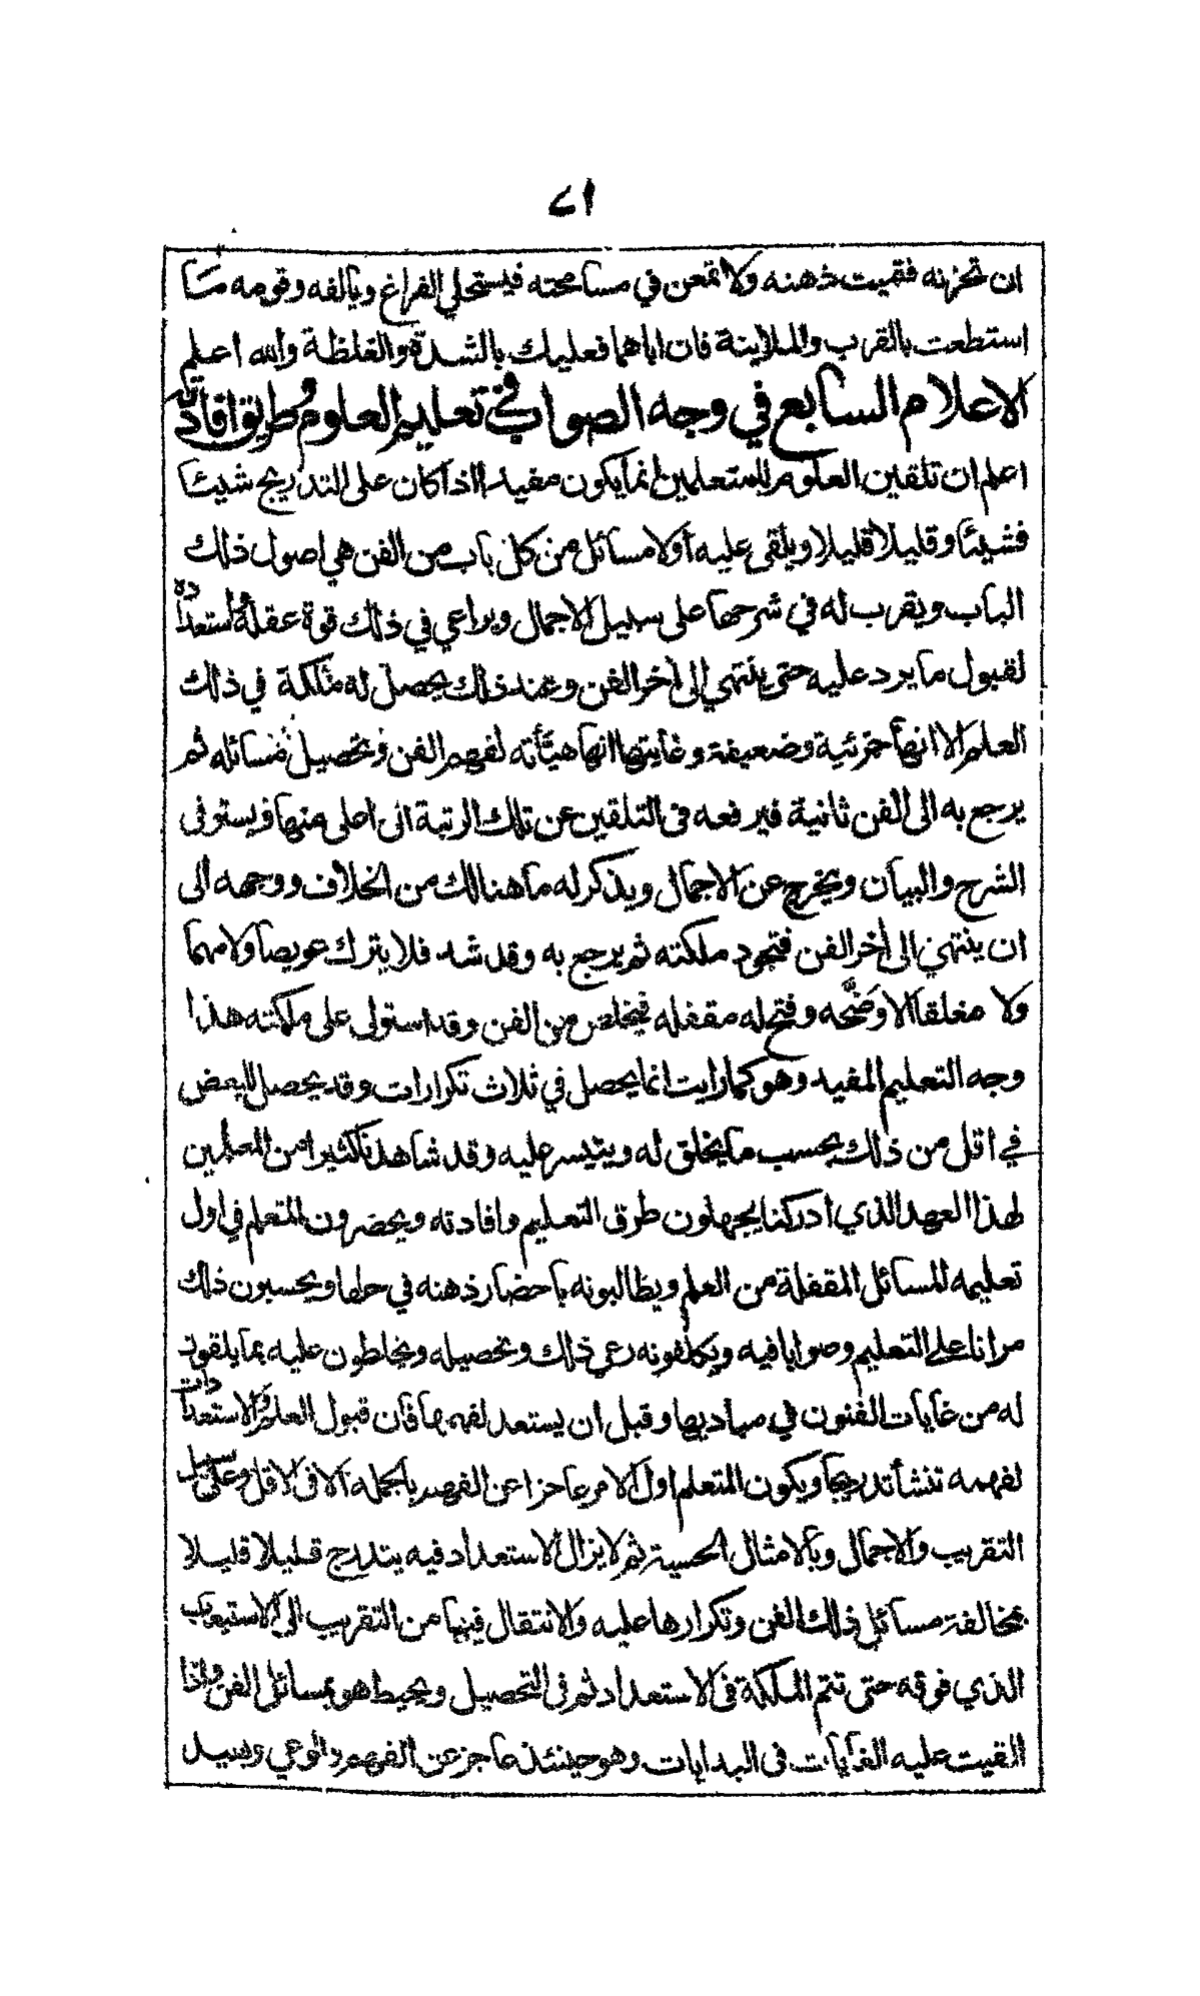 ٢١
ان تحزنه فتميت ذهنه ولا تمعن في مسامحته فيستحلي الفراغ ويالفه وقومه ما
استطعت بالقرب والملاينة فان اباهما فعليك بالشدة والغلظة والله اعلم
الاعلام السابع في وجه الصواب في تعليم العلوم وطريق افادته
اعلم ان تلقين العلوم للمتعلمين انما يكون مفيدا اذا كان على التدريج شيئا
فشيئا وقليلا قليلا ويلقى عليه أولا مسائل من كل باب من الفن هي اصول ذلك
الباب ويقرب له في شرحها على سبيل الاجمال ويراعي في ذلك قوة عقله واستعداده
لقبول ما يرد عليه حتى ينتهي إلى أخر الفن وعند ذلك يحصل له ملكة في ذلك
العلم الا انها جزئية وضعيفة وغايتها انها هيأته لفهم الفن وتحصيل مسائله ثم
يرجع به الى الفن ثانية فيرفعه في التلقين عن تلك الرتبة الى اعلى منها ويستوفى
الشرح والبيان ويخرج عن الاجمال ويذكر له ما هنالك من الخلاف ووجهه الى
ان ينتهي الى أخر الفن فتجود ملكته ثم يرجع به وقد شد فلا يترك عويصا ولا مهما
ولا مغلقا الا وضّحه وفتح له مقفله فيخلص من الفن وقد استولى على ملكته هذا
وجه التعليم المفيد وهو كما رايت انما يحصل في ثلاث تكرارات وقد يحصل للبعض
في اقل من ذلك بحسب ما يخلق له ويتيسر عليه وقد شاهدنا كثيرا من المعلمين
لهذا العهد الذي أدركنا يجهلون طرق التعليم وافادته ويحضرون للمتعلم في اول
تعليمه المسائل المقفلة من العلم ويطالبونه باحضار ذهنه في حلها ويحسبون ذلك
مرانا على التعليم وصوابا فيه ويكلفونه رعي ذلك وتحصيله ويخلطون عليه بما يلقون
له من غايات الفنون في مباديها وقبل ان يستعد لفهمها فان قبول العلم والاستعدادات
لفهمه تنشأ تدريجا ويكون المتعلم اول الامر عاجزا عن الفهم بالجمله الا في الاقل وعلى سبيل
التقريب والاجمال وبالامثال الحسية ثم لا يزال الاستعداد فيه يتدرج قليلا قليلا
بمخالفة مسائل ذلك الفن وتكرارها عليه والانتقال فيها من التقريب الى الاستيعاب
الذي فوقه حتى تتم الملكة في الاستعداد ثم في التحصيل ويحيط هو بمسائل الفن واذا
القيت عليه الغايات في البدايات وهو حينئذ عاجز عن الفهم والوعي وبعيد